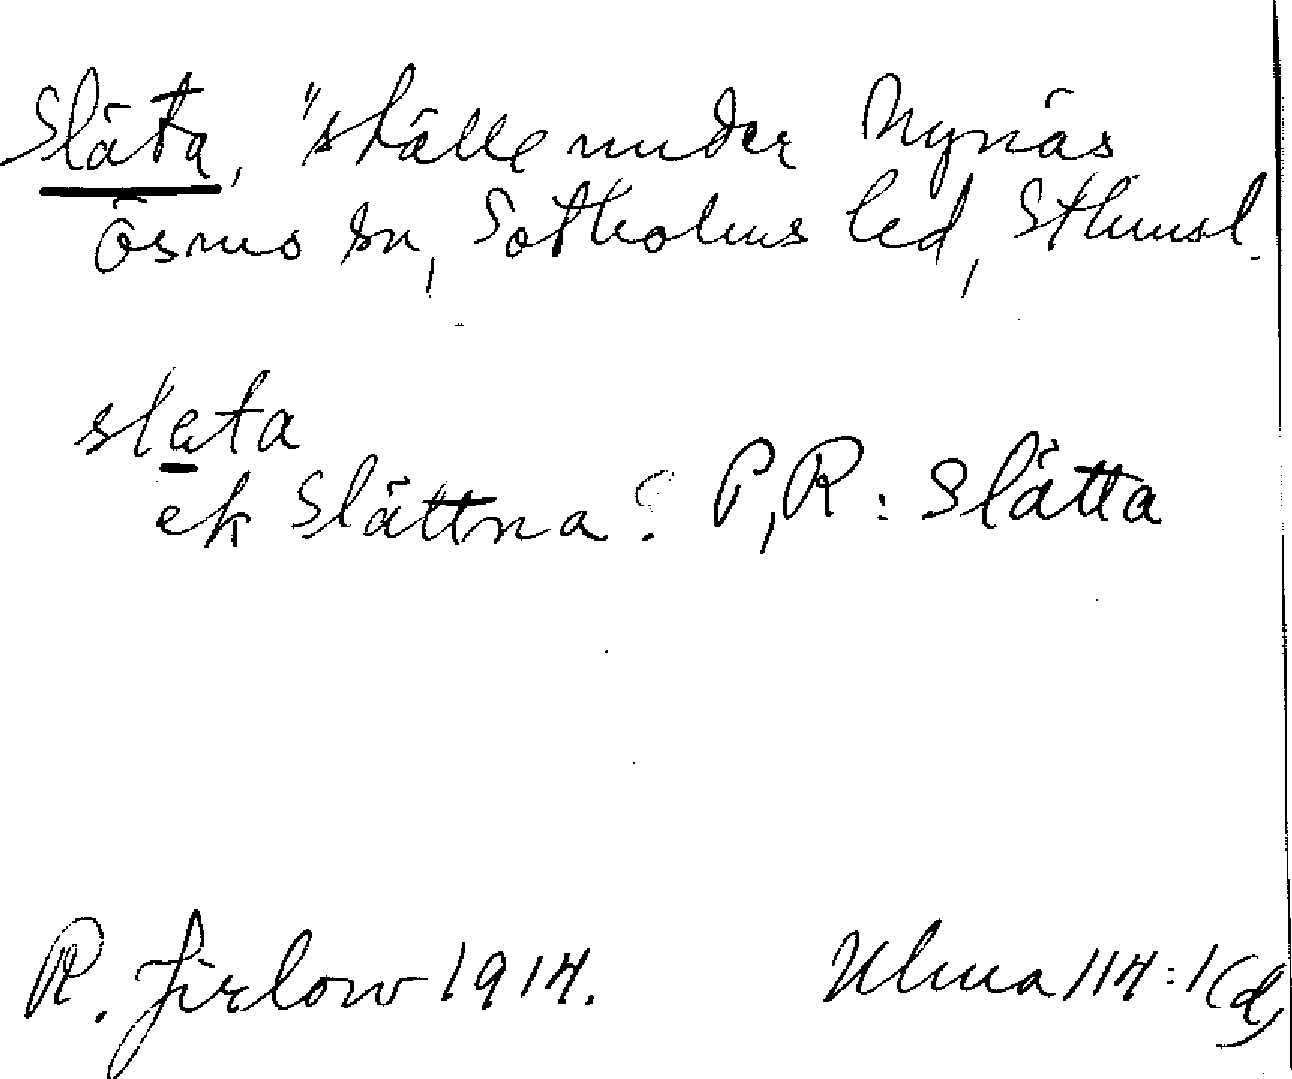 Släta, "ställe under Nynäs
Ösmo sn, Sotholms hd, Sthmsl.
släta
ek Slättna? P, R: Slätta
R. Jirlow 1914. Ulma 114:1(d)